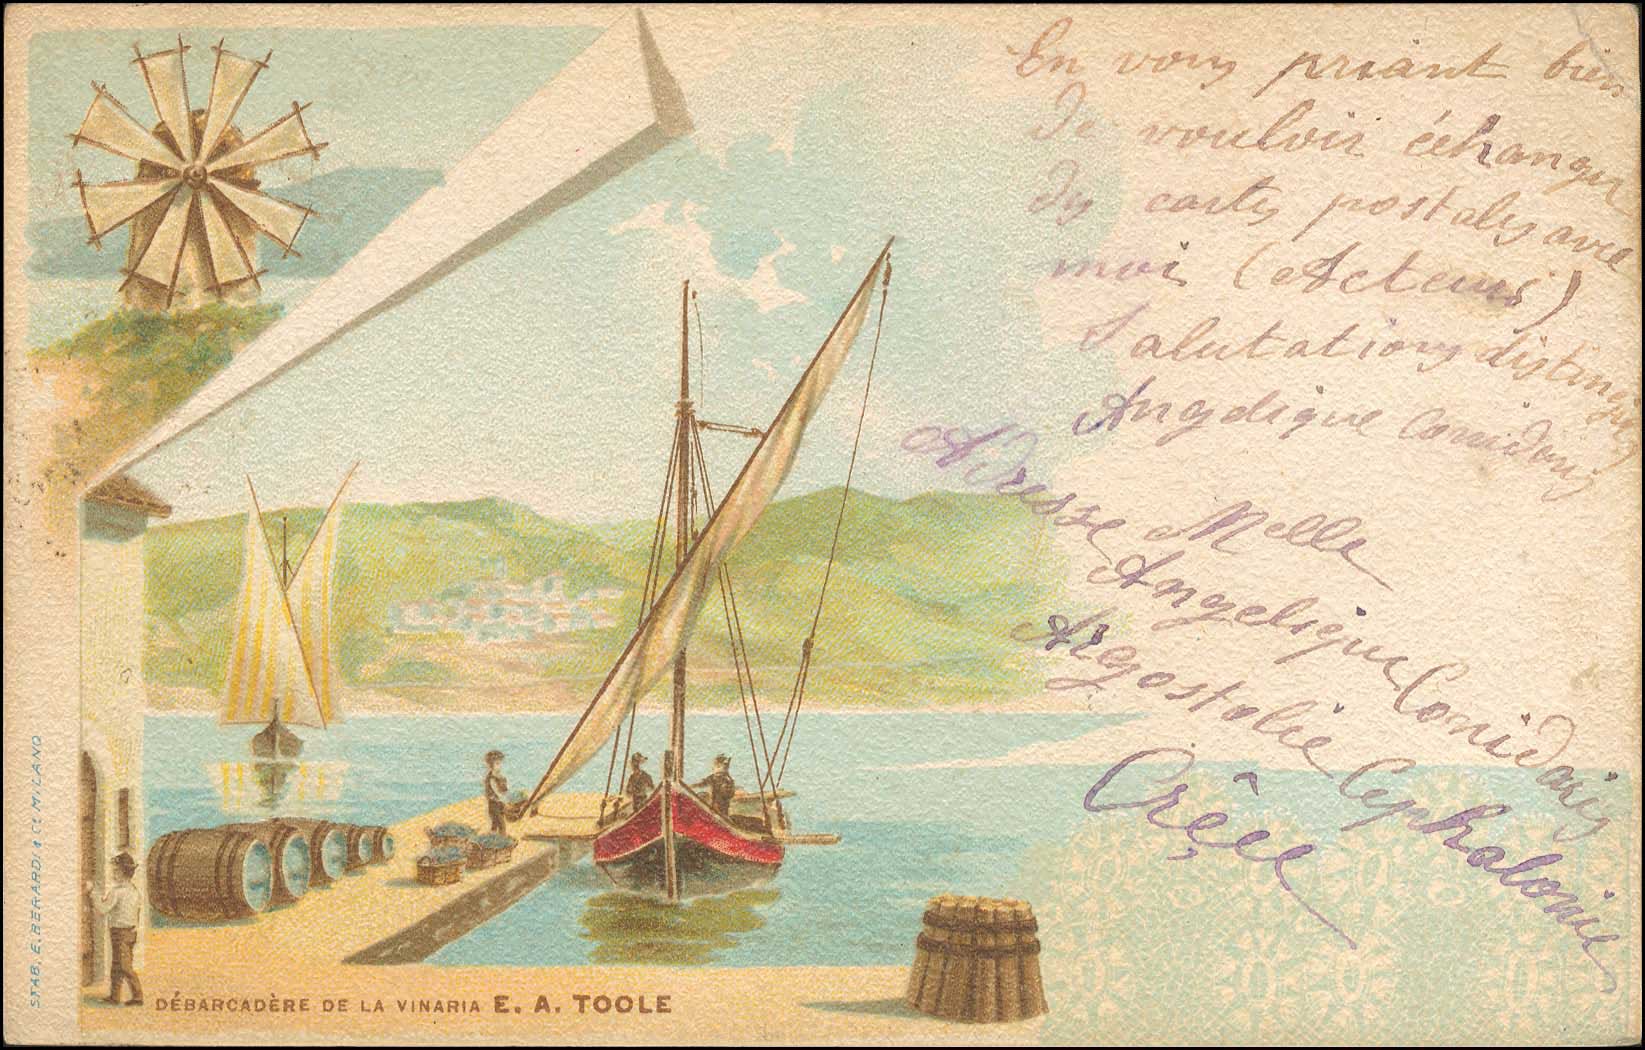 En vous priant bien
de vouloir échanger
des cartes postales avec
moi (Acteurs)
Salutations distinguées
Angelique
Adresse Melle
Angelique
Argostolie Cephalonie
Crêce
DÉBARCADÈRE DE LA VINARIA E. A. TOOLE
STAB. E. BERARDI & Cº MILANO